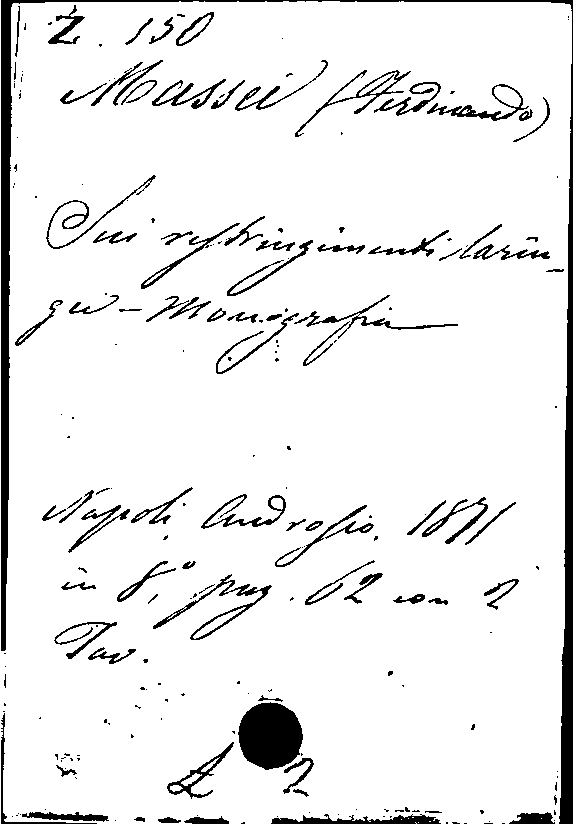 Z. 150
Massei (Ferdinando)
Sui restringimenti larin-
gei - Monografia
Napoli, Androsio, 1871
in 8°, pag. 62 con 2
Tav.
L 2